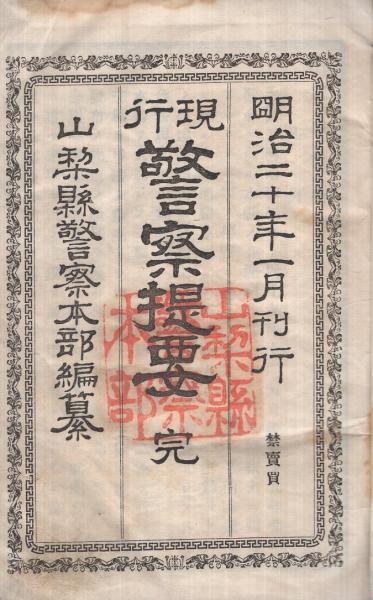 明治二十年一月刊行
禁賣買
現行
警察提要 完
山梨縣警察本部編纂
山梨縣
警察
本部